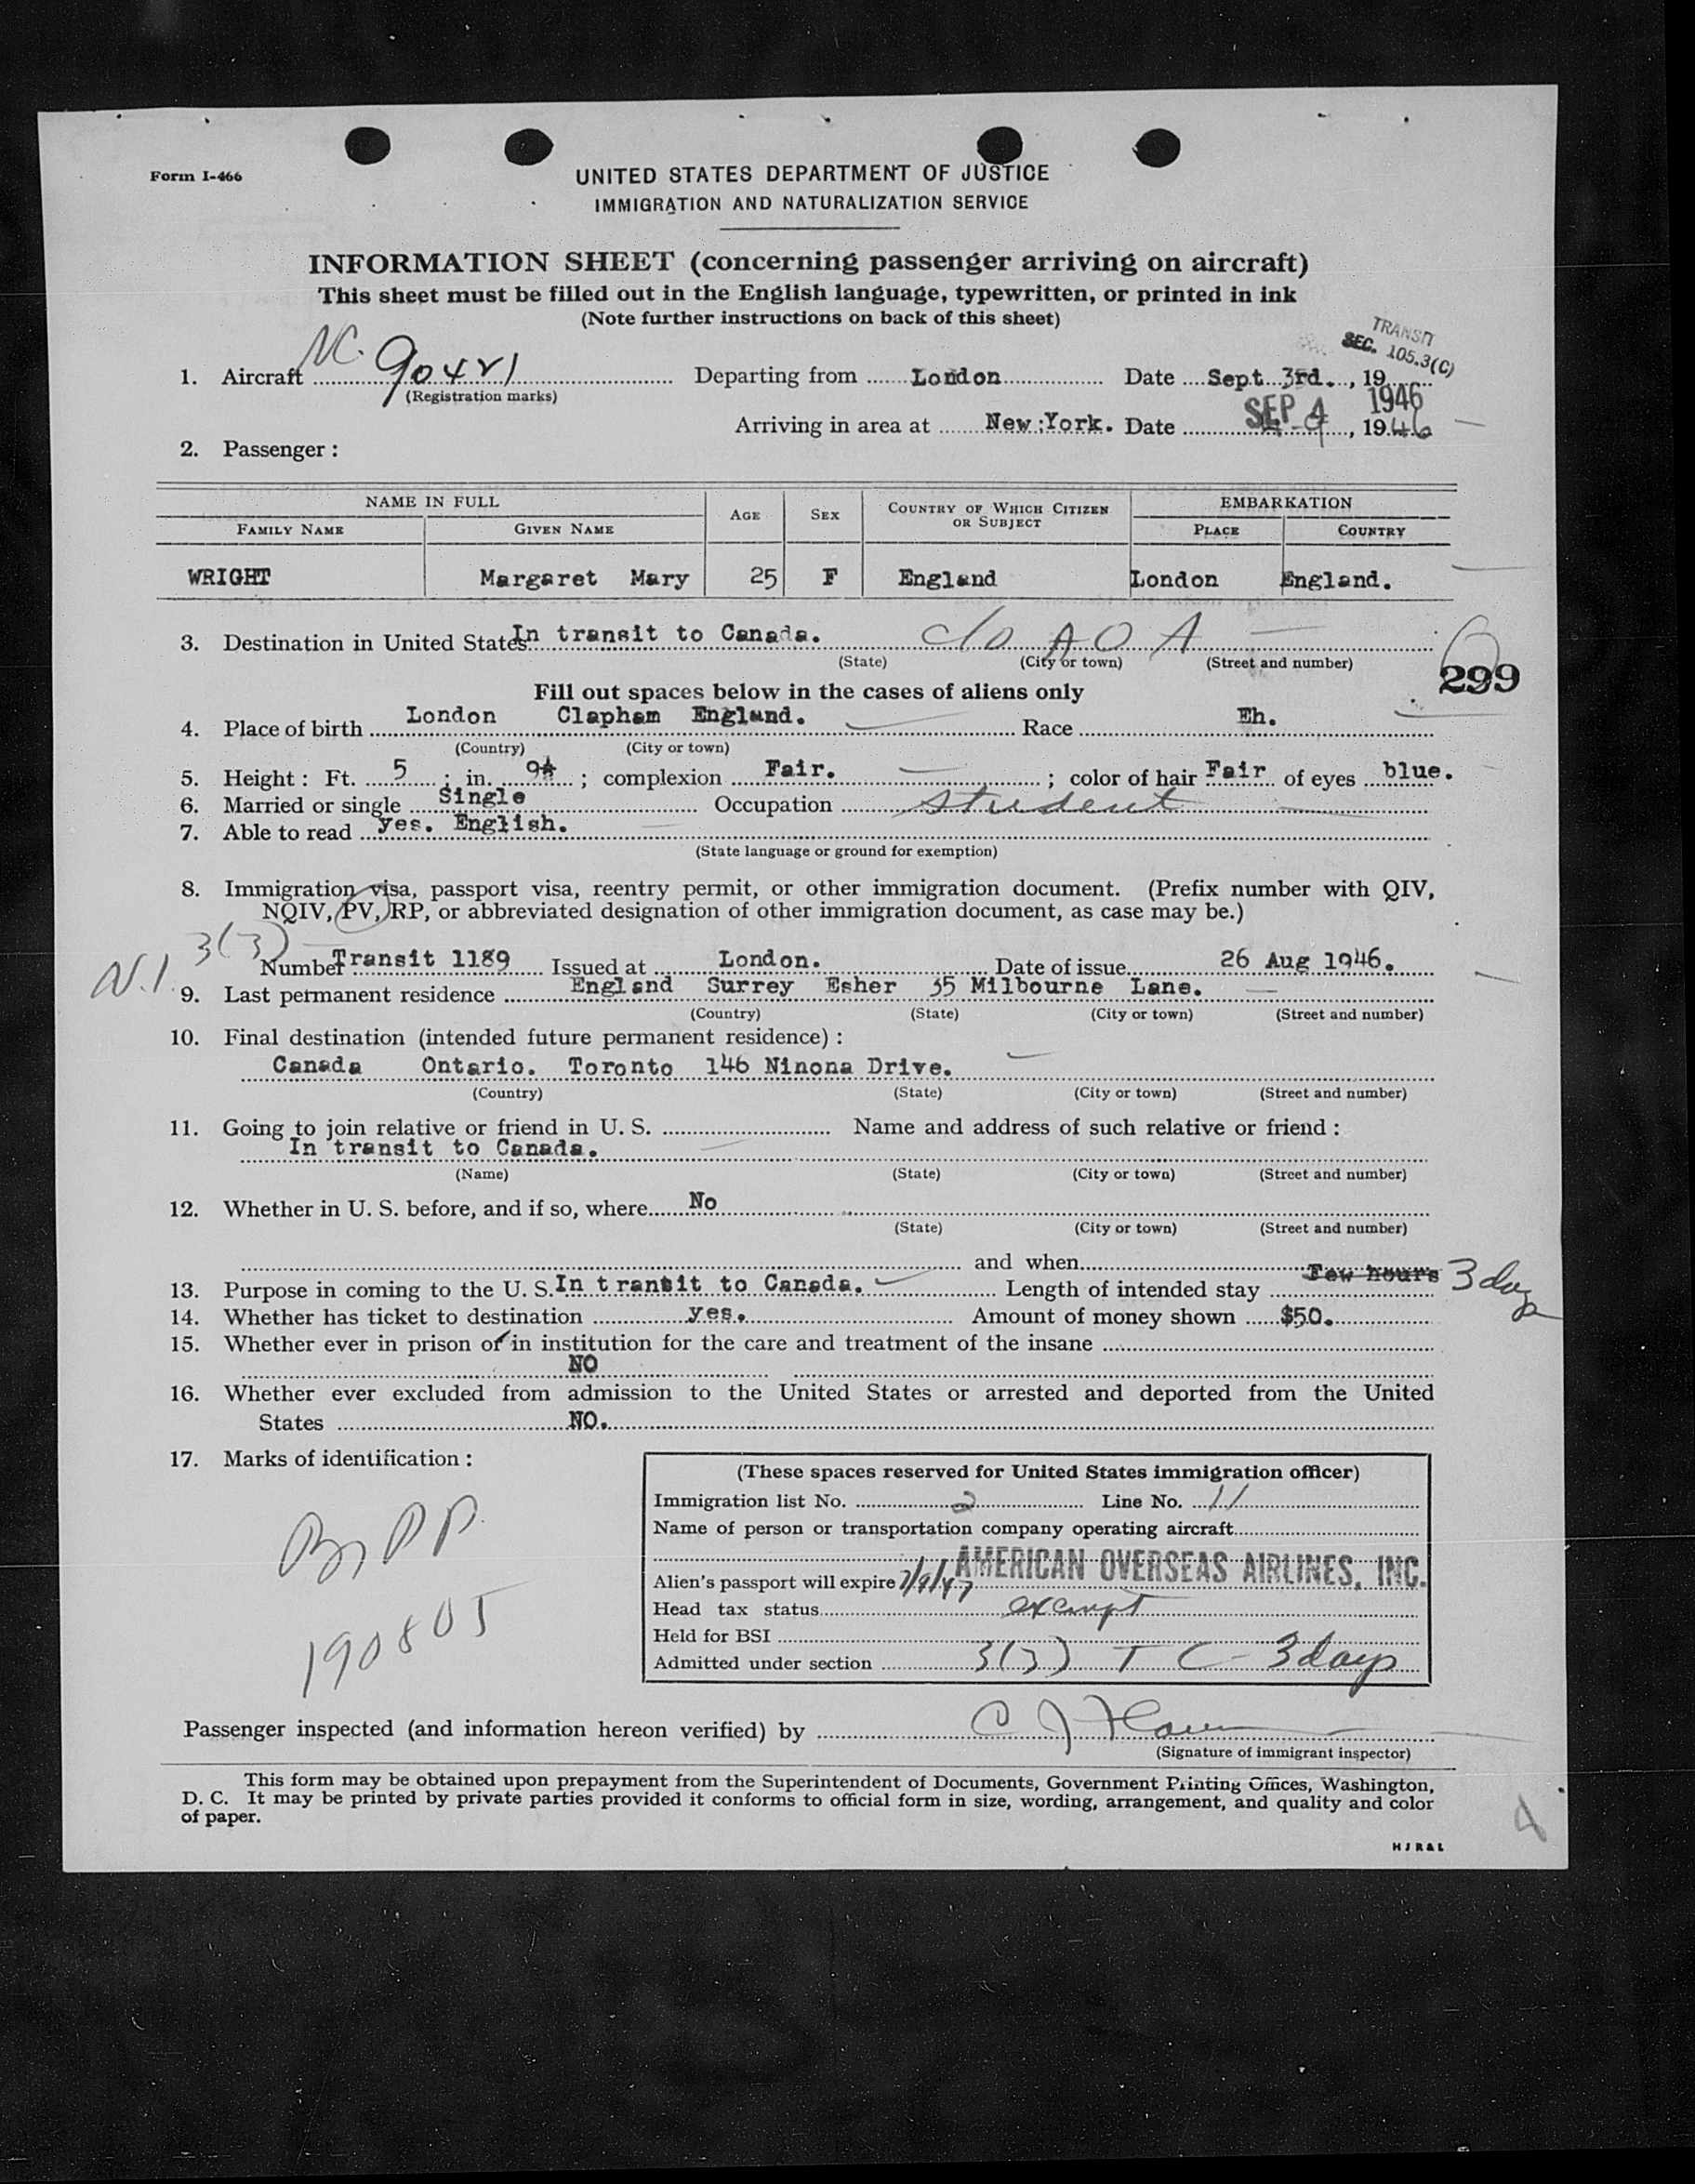 Form I-466
UNITED STATES DEPARTMENT OF JUSTICE
IMMIGRATION AND NATURALIZATION SERVICE
INFORMATION SHEET (concerning passenger arriving on aircraft)
This sheet must be filled out in the English language, typewritten, or printed in ink
(Note further instructions on back of this sheet)
TRANSIT
SEC. 105.3(C)
1. Aircraft NC. 90421 Departing from London Date Sept 3rd., 19 1946
(Registration marks)
Arriving in area at New York. Date SEP 4, 1946
2. Passenger:
NAME IN FULL AGE SEX COUNTRY OF WHICH CITIZEN OR SUBJECT EMBARKATION
FAMILY NAME GIVEN NAME PLACE COUNTRY
WRIGHT Margaret Mary 25 F England London England.
3. Destination in United States In transit to Canada. c/o A O A
(State) (City or town) (Street and number)
299
Fill out spaces below in the cases of aliens only
4. Place of birth London Clapham England. Race Eh.
(Country) (City or town)
5. Height: Ft. 5; in. 9½; complexion Fair.; color of hair Fair of eyes blue.
6. Married or single Single Occupation student
7. Able to read yes. English.
(State language or ground for exemption)
8. Immigration visa, passport visa, reentry permit, or other immigration document. (Prefix number with QIV,
NQIV, PV, RP, or abbreviated designation of other immigration document, as case may be.)
N.I. 3(3)
Number Transit 1189 Issued at London. Date of issue 26 Aug 1946.
9. Last permanent residence England Surrey Esher 35 Milbourne Lane.
(Country) (State) (City or town) (Street and number)
10. Final destination (intended future permanent residence):
Canada Ontario. Toronto 146 Ninona Drive.
(Country) (State) (City or town) (Street and number)
11. Going to join relative or friend in U. S. Name and address of such relative or friend:
In transit to Canada.
(Name) (State) (City or town) (Street and number)
12. Whether in U. S. before, and if so, where No
(State) (City or town) (Street and number)
and when
13. Purpose in coming to the U. S. In transit to Canada. Length of intended stay Few hours 3 days
14. Whether has ticket to destination yes. Amount of money shown $50.
15. Whether ever in prison or in institution for the care and treatment of the insane
NO
16. Whether ever excluded from admission to the United States or arrested and deported from the United
States NO.
17. Marks of identification:
190805
(These spaces reserved for United States immigration officer)
Immigration list No. 2 Line No. 11
Name of person or transportation company operating aircraft
AMERICAN OVERSEAS AIRLINES, INC.
Alien's passport will expire 7/9/47
Head tax status exempt
Held for BSI
Admitted under section 3(3) T C 3 days
Passenger inspected (and information hereon verified) by
(Signature of immigrant inspector)
This form may be obtained upon prepayment from the Superintendent of Documents, Government Printing Offices, Washington,
D. C. It may be printed by private parties provided it conforms to official form in size, wording, arrangement, and quality and color
of paper.
HJR&L
4